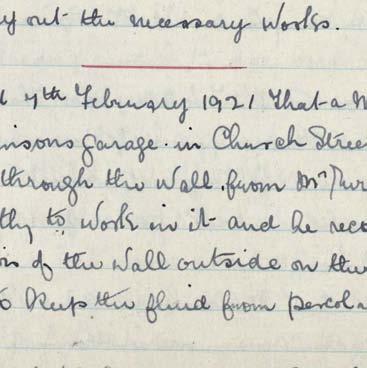 y out the necessary Works.
7th February 1921 That a
insons garage in Church Stree
through the Wall from Mr Tur
thy to Work in it and he reco
of the Wall outside on the
to Keep the fluid from percola